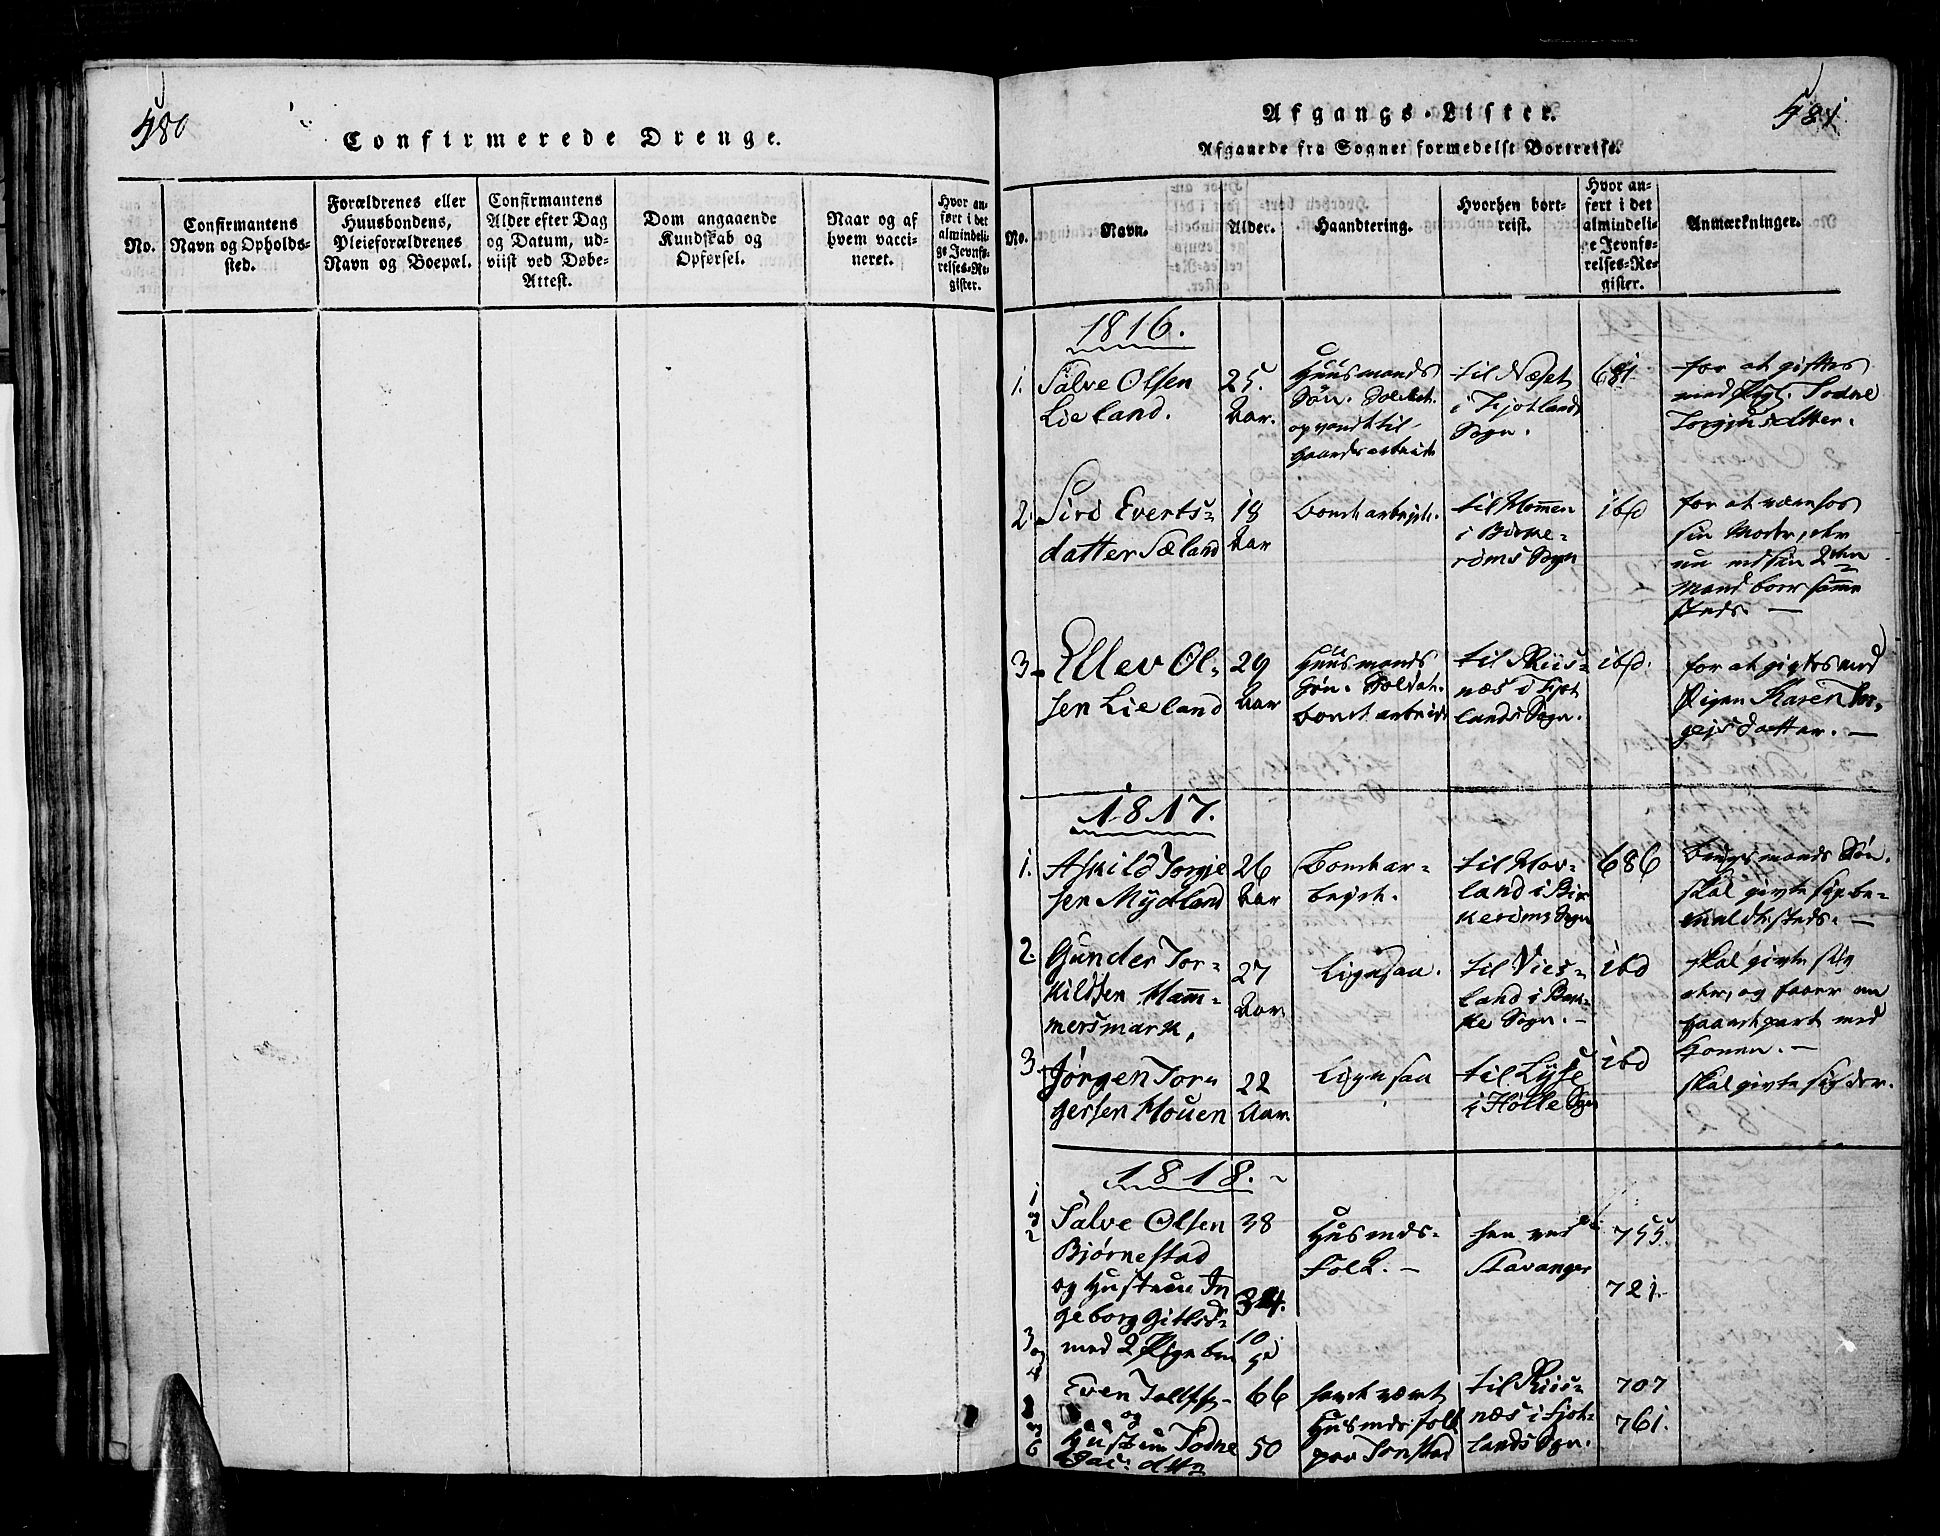 480
Confirmerede Drenge.
No.
Confirmantens
Navn og Opholds-
sted.
Forældrenes eller
Huusbondens,
Pleieforældrenes
Navn og Boepæl.
Confirmantens
Alder efter Dag
og Datum, ud-
viist ved Døbe-
Attest.
Dom angaaende
Kundskab og
Opførsel.
Naar og af
hvem vacci-
neret.
Hvor an-
ført i det
almindeli-
ge Jevnfø-
relses-Re-
gister.
481
Afgangs-Lister.
Afgaaede fra Sognet formedelst Bortreise.
No.
Navn.
Alder.
Haandtering.
Hvorhen bort-
reist.
Hvor an-
ført i det
almindeli-
ge Jevnfø-
relses-Re-
gister.
Anmærkninger.
1816.
1.
Salve Olsen
Lieland.
25.
Aar.
Huusmands
Søn. Soldat.
og vandt til
Haandarbeide
til Næset
i Fjotlands
Sogn.
681.
for at giftes
med Todne
Torgiusdatter.
2.
Siri Everts-
datter Sæland
18
Aar
Bondearbeide.
til Mommen
i Birke-
rems Sogn
ibd
for at være hos
sin Moder, der
nu med sin 2den
Mand boer samme
steds. —
3.
Ellev Ol-
sen Lieland
29
Aar
Huusmands
Søn. Soldat.
bondearbeide
til Riis-
næs i Fjot
lands Sogn.
ibd.
for at givtes med
Pigen Karen Tor-
geisdatter. —
1817.
1.
Askild Torgje
sen Mydland
26
Aar
Bondear-
beide.
til Mov-
land i Bir
kerems Sogn
686
Søn.
skal givte sig be-
meldte steds. —
2.
Gunder Tor-
kildsen Ham-
mersmark.
27
Aar
Ligesaa.
til Vies-
land i Bak-
ke Sogn. —
ibd
skal givte sig
der, og faaer en
Gaardpart med
Konen. —
3.
Jørgen Tor-
gersen Mouen
22
Aar.
Ligesaa
til Lyse
i Hølle Sogn
ibd
skal givte sig der.
1818. -
1
og
2
Salve Olsen
Bjørnestad
og Hustrue In
geborg Gitlsd-
38
34.
Husmds-
Folk. —
hen ved
Stavanger
755.
721.
3
og
4
med 2 Pigebørn
10
Even
og
Hustrue Todne
Jac: dtt
66
50
Husmdsfolk
paa Tonstad
til Riis-
næs i Fjot-
lands Sogn.
707
761.
6